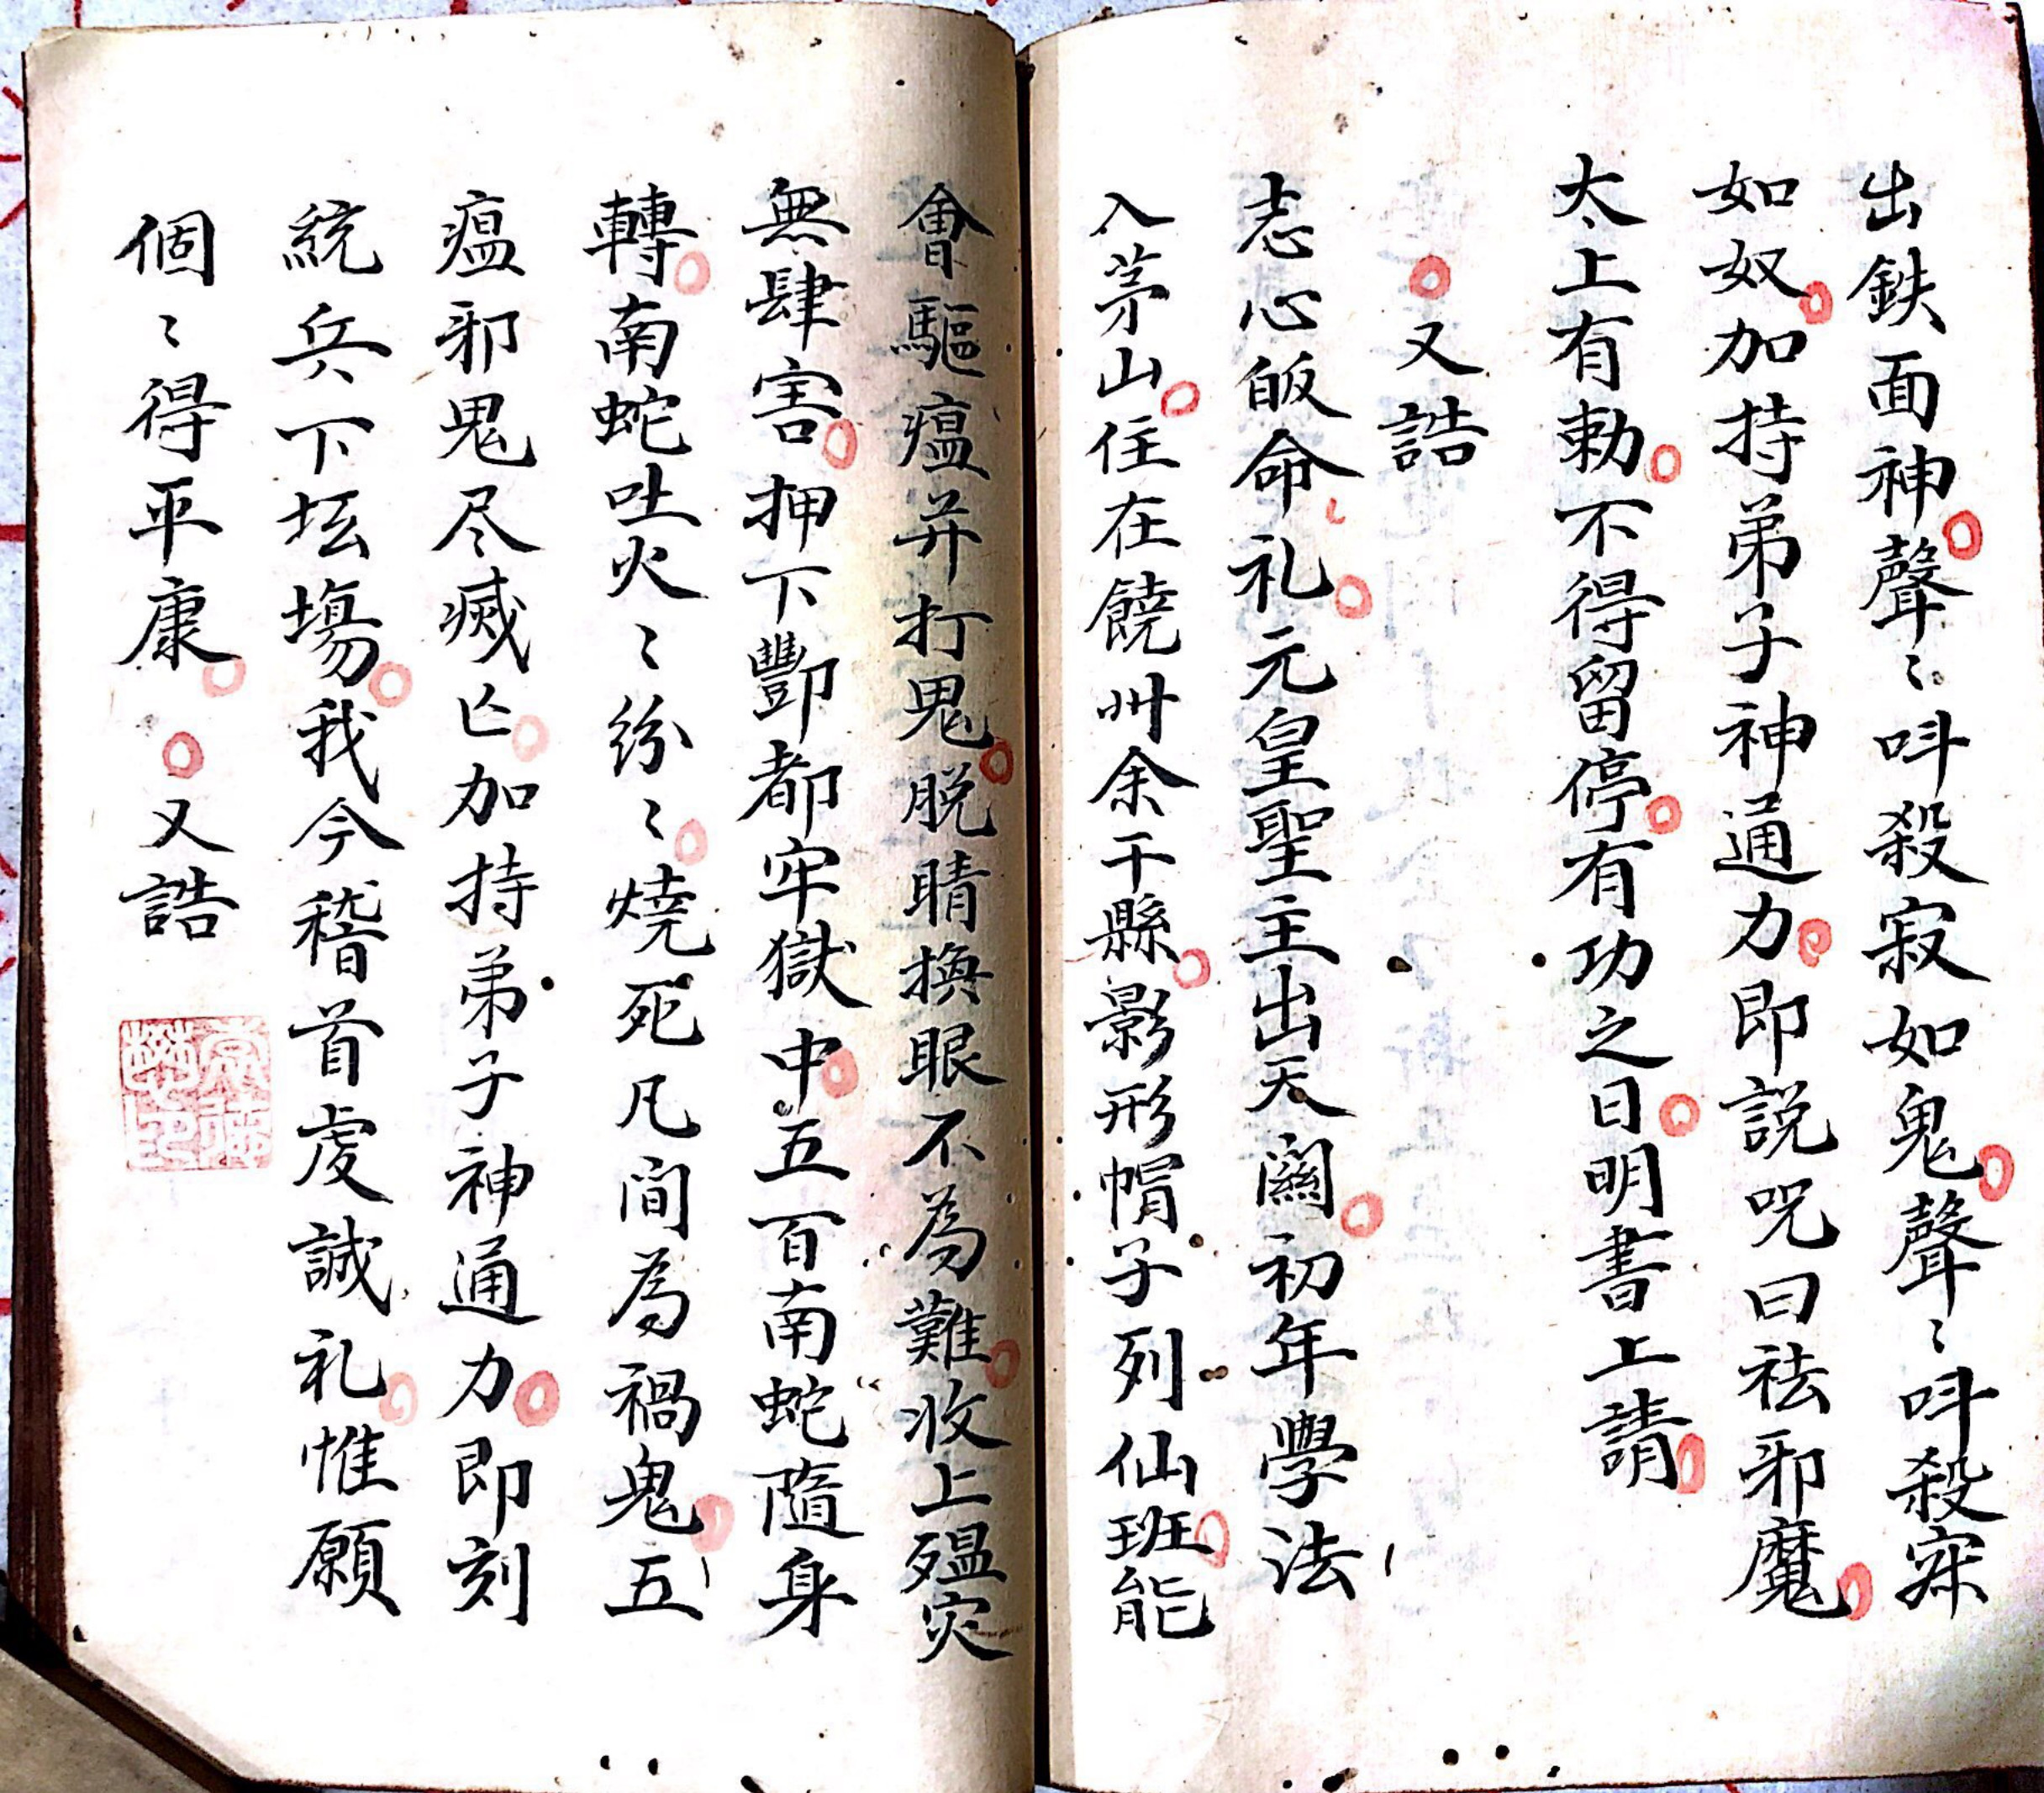 出鉄面神聲〻呌殺寂如鬼聲〻呌殺寂
如奴加持弟子神通力即説呪曰祛邪魔
太上有勅不得留停有功之日明書上請
又誥
志心皈命礼元皇聖主出天闗初年學法
入茅山住在饒州余干縣影形帽子列仙班能
會驅瘟并打鬼脱睛換眼不為難收上瘟灾
無肆害押下酆都牢獄中五百南蛇隨身
轉南蛇吐火〻紛〻燒死凡间為禍鬼五
瘟邪鬼尽滅亡加持弟子神通力即刻
統兵下坛塲我今稽首虔誠礼惟願
個〻得平康 又誥